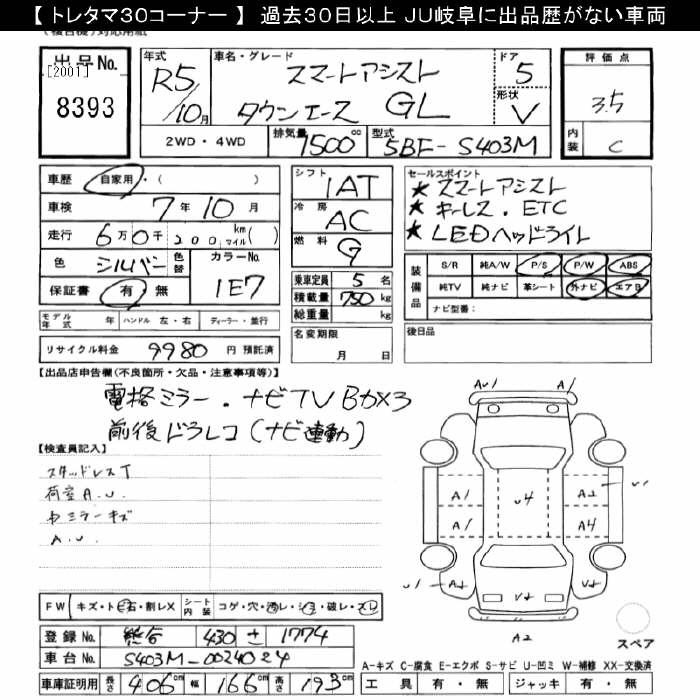 【 トレタマ30コーナー 】 過去30日以上 JU岐阜に出品歴がない車両
出品No.
[2001]
8393
年式
R5/10月
車名・グレード
スマートアシスト
タウンエース GL
ドア
5
形状
V
評価点
3.5
内装
C
2WD・4WD
排気量
1500cc
型式
5BF-S403M
車歴
自家用・( )
車検
7年10月
走行
6万0千200 km マイル( )
色
シルバー
色替
カラーNo.
1E7
保証書
有 無
シフト
1AT
冷房
AC
燃料
G
乗車定員 5名
積載量 750kg
総重量 kg
セールスポイント
★スマートアシスト
★キーレス.ETC
★LEDヘッドライト
装備品
S/R 純A/W P/S P/W ABS
純TV 純ナビ 革シート 外ナビ エアB
ナビ型番:
モデル年式 年 ハンドル 左・右 ディーラー・並行
名変期限
月 日
後日品
リサイクル料金 9980 円 預託済
【出品店申告欄(不良箇所・欠品・注意事項等)】
電格ミラー.ナビTV Bカメラ
前後ドラレコ(ナビ連動)
【検査員記入】
スタッドレスT
荷室A.U.
ミラーキズ
A.U.
AU1
A1
A1
A1
U4
A2
A4
U1
U1
A2
A2
FW キズ・ト 石・割レX
シート内装 コゲ・穴・汚レ・シミ・破レ・スレ
登録No. 熊谷 430 さ 1774
車台No. S403M-0024024
車庫証明用 長さ 406cm 幅 166cm 高さ 193cm
スペア
A-キズ C-腐食 E-エクボ S-サビ U-凹ミ W-補修 XX-交換済
工具 有・無 ジャッキ 有・無